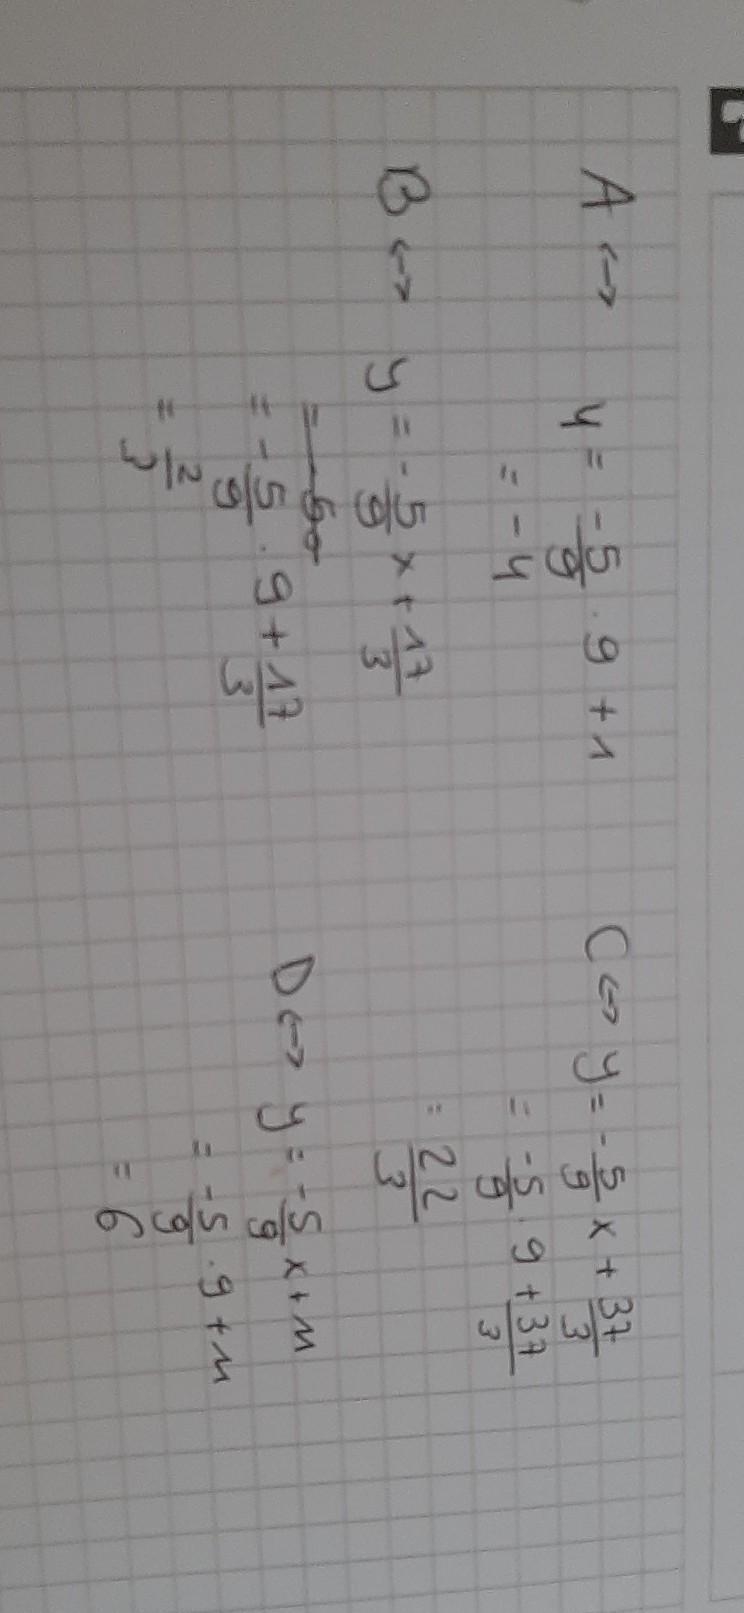 A ↔ y = -5/9 · 9 + 1
= -4
B ↔ y = -5/9 x + 17/3
= -5/9 · 9 + 17/3
= 2/3
C ↔ y = -5/9 x + 37/3
= -5/9 · 9 + 37/3
= 22/3
D ↔ y = -5/9 x + 11
= -5/9 · 9 + 11
= 6